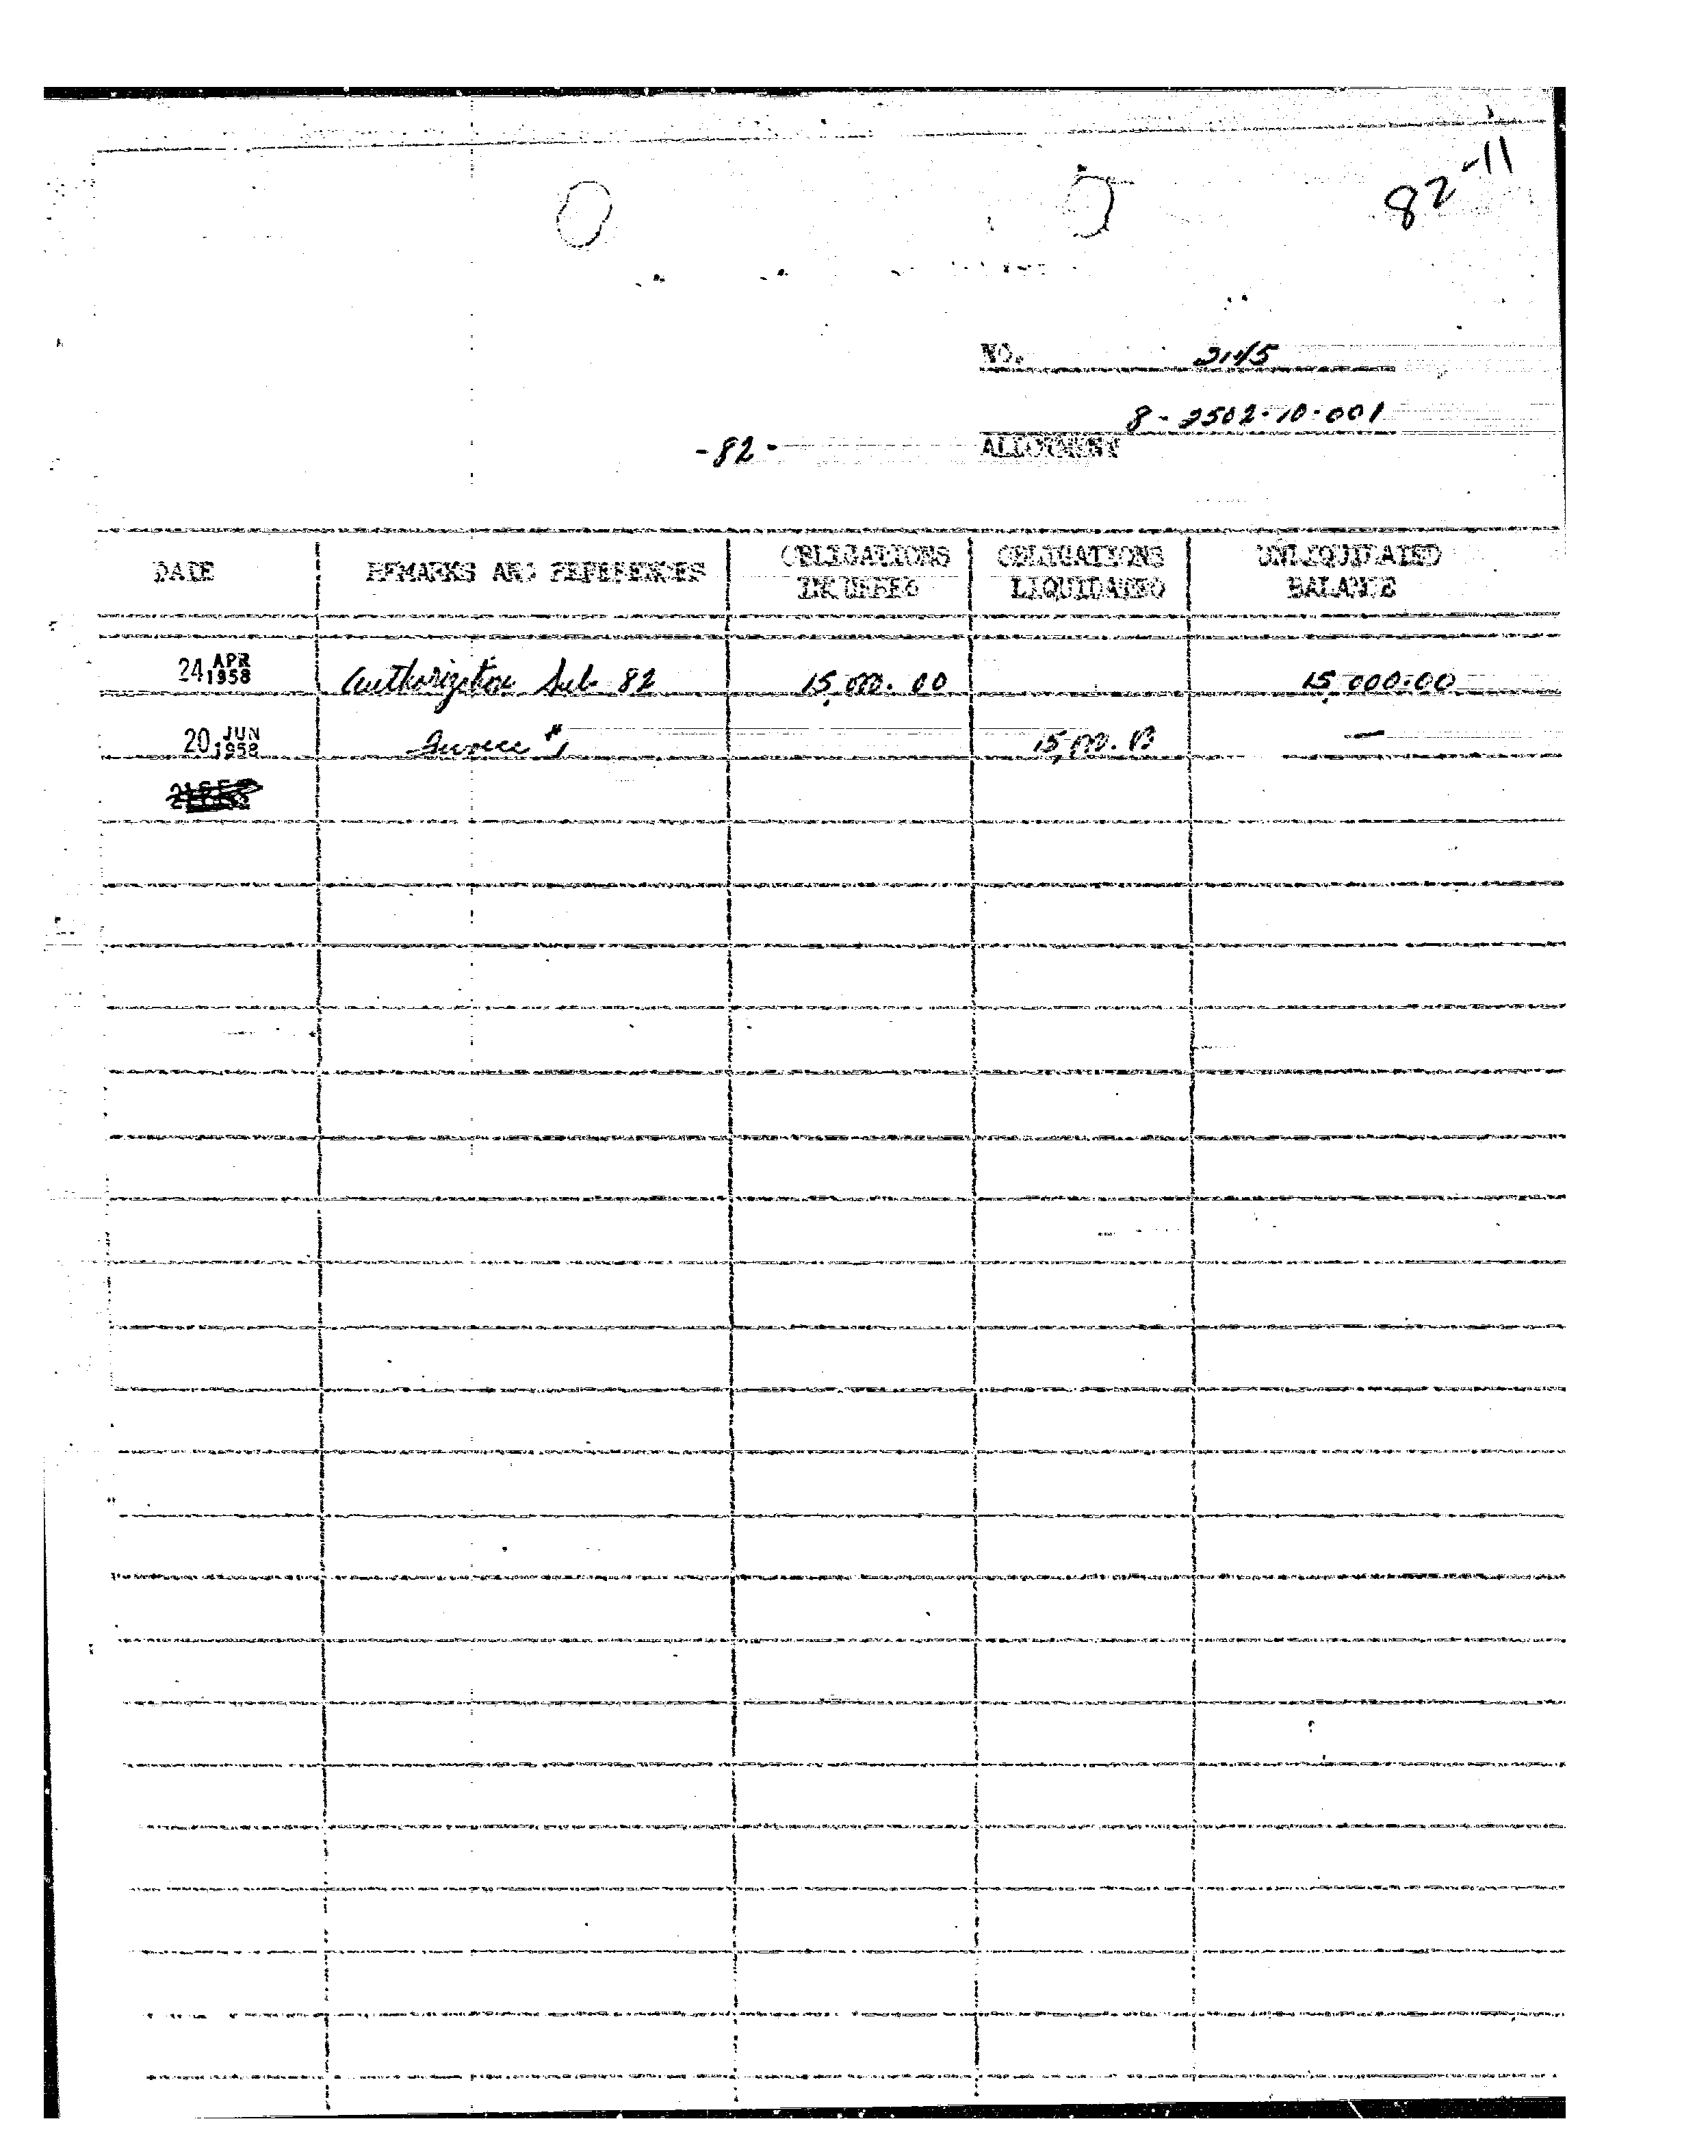 82-11
NO. 2145
8-2502-10-001
-82-
ALLOTMENT
DATE REMARKS AND REFERENCES OBLIGATIONS INCURRED OBLIGATIONS LIQUIDATED UNLIQUIDATED BALANCE
24 APR 1958 Authorization Sub 82 15,000.00 15,000.00
20 JUN 1958 Invoice #1 15,000.00 —